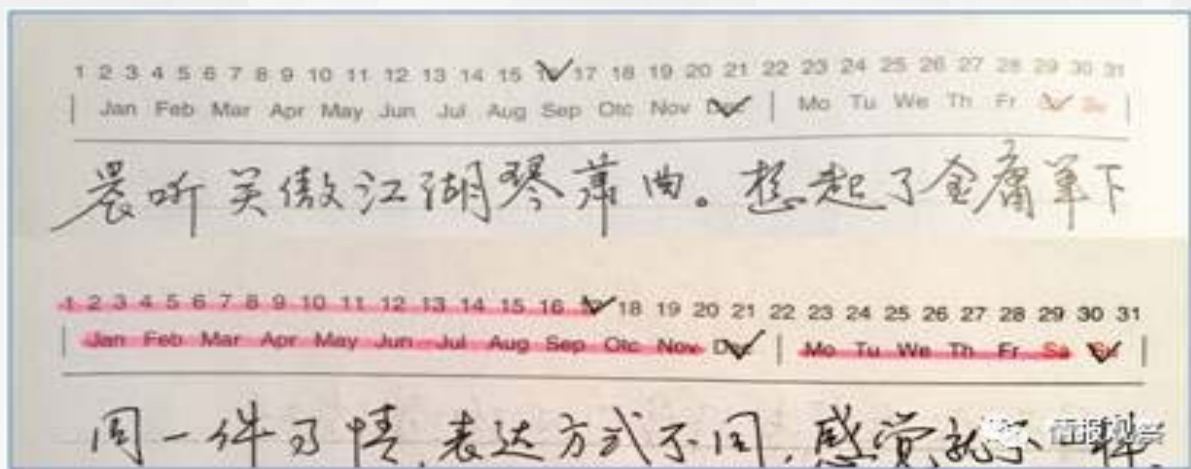 1 2 3 4 5 6 7 8 9 10 11 12 13 14 15 16 17 18 19 20 21 22 23 24 25 26 27 28 29 30 31
Jan Feb Mar Apr May Jun Jul Aug Sep Otc Nov Dec Mo Tu We Th Fr Sa Su
晨听笑傲江湖琴萧曲。想起了金庸笔下
1 2 3 4 5 6 7 8 9 10 11 12 13 14 15 16 17 18 19 20 21 22 23 24 25 26 27 28 29 30 31
Jan Feb Mar Apr May Jun Jul Aug Sep Otc Nov Dec Mo Tu We Th Fr Sa Su
同一件事情,表达方式不同,感觉就不一样
情报观察